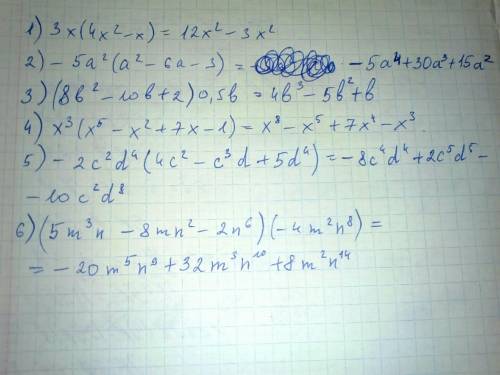 1) 3x(4x²-x) = 12x²-3x²
2) -5a²(a²-6a-3) = -5a⁴+30a³+15a²
3) (8b²-10b+2)0,5b = 4b³-5b²+b
4) x³(x⁵-x²+7x-1) = x⁸-x⁵+7x⁴-x³
5) -2c²d⁴(4c²-c³d+5d⁴) = -8c⁴d⁴+2c⁵d⁵-
-10c²d⁸
6) (5m³n-8mn²-2n⁶)(-4m²n⁸) =
= -20m⁵n⁹+32m³n¹⁰+8m²n¹⁴